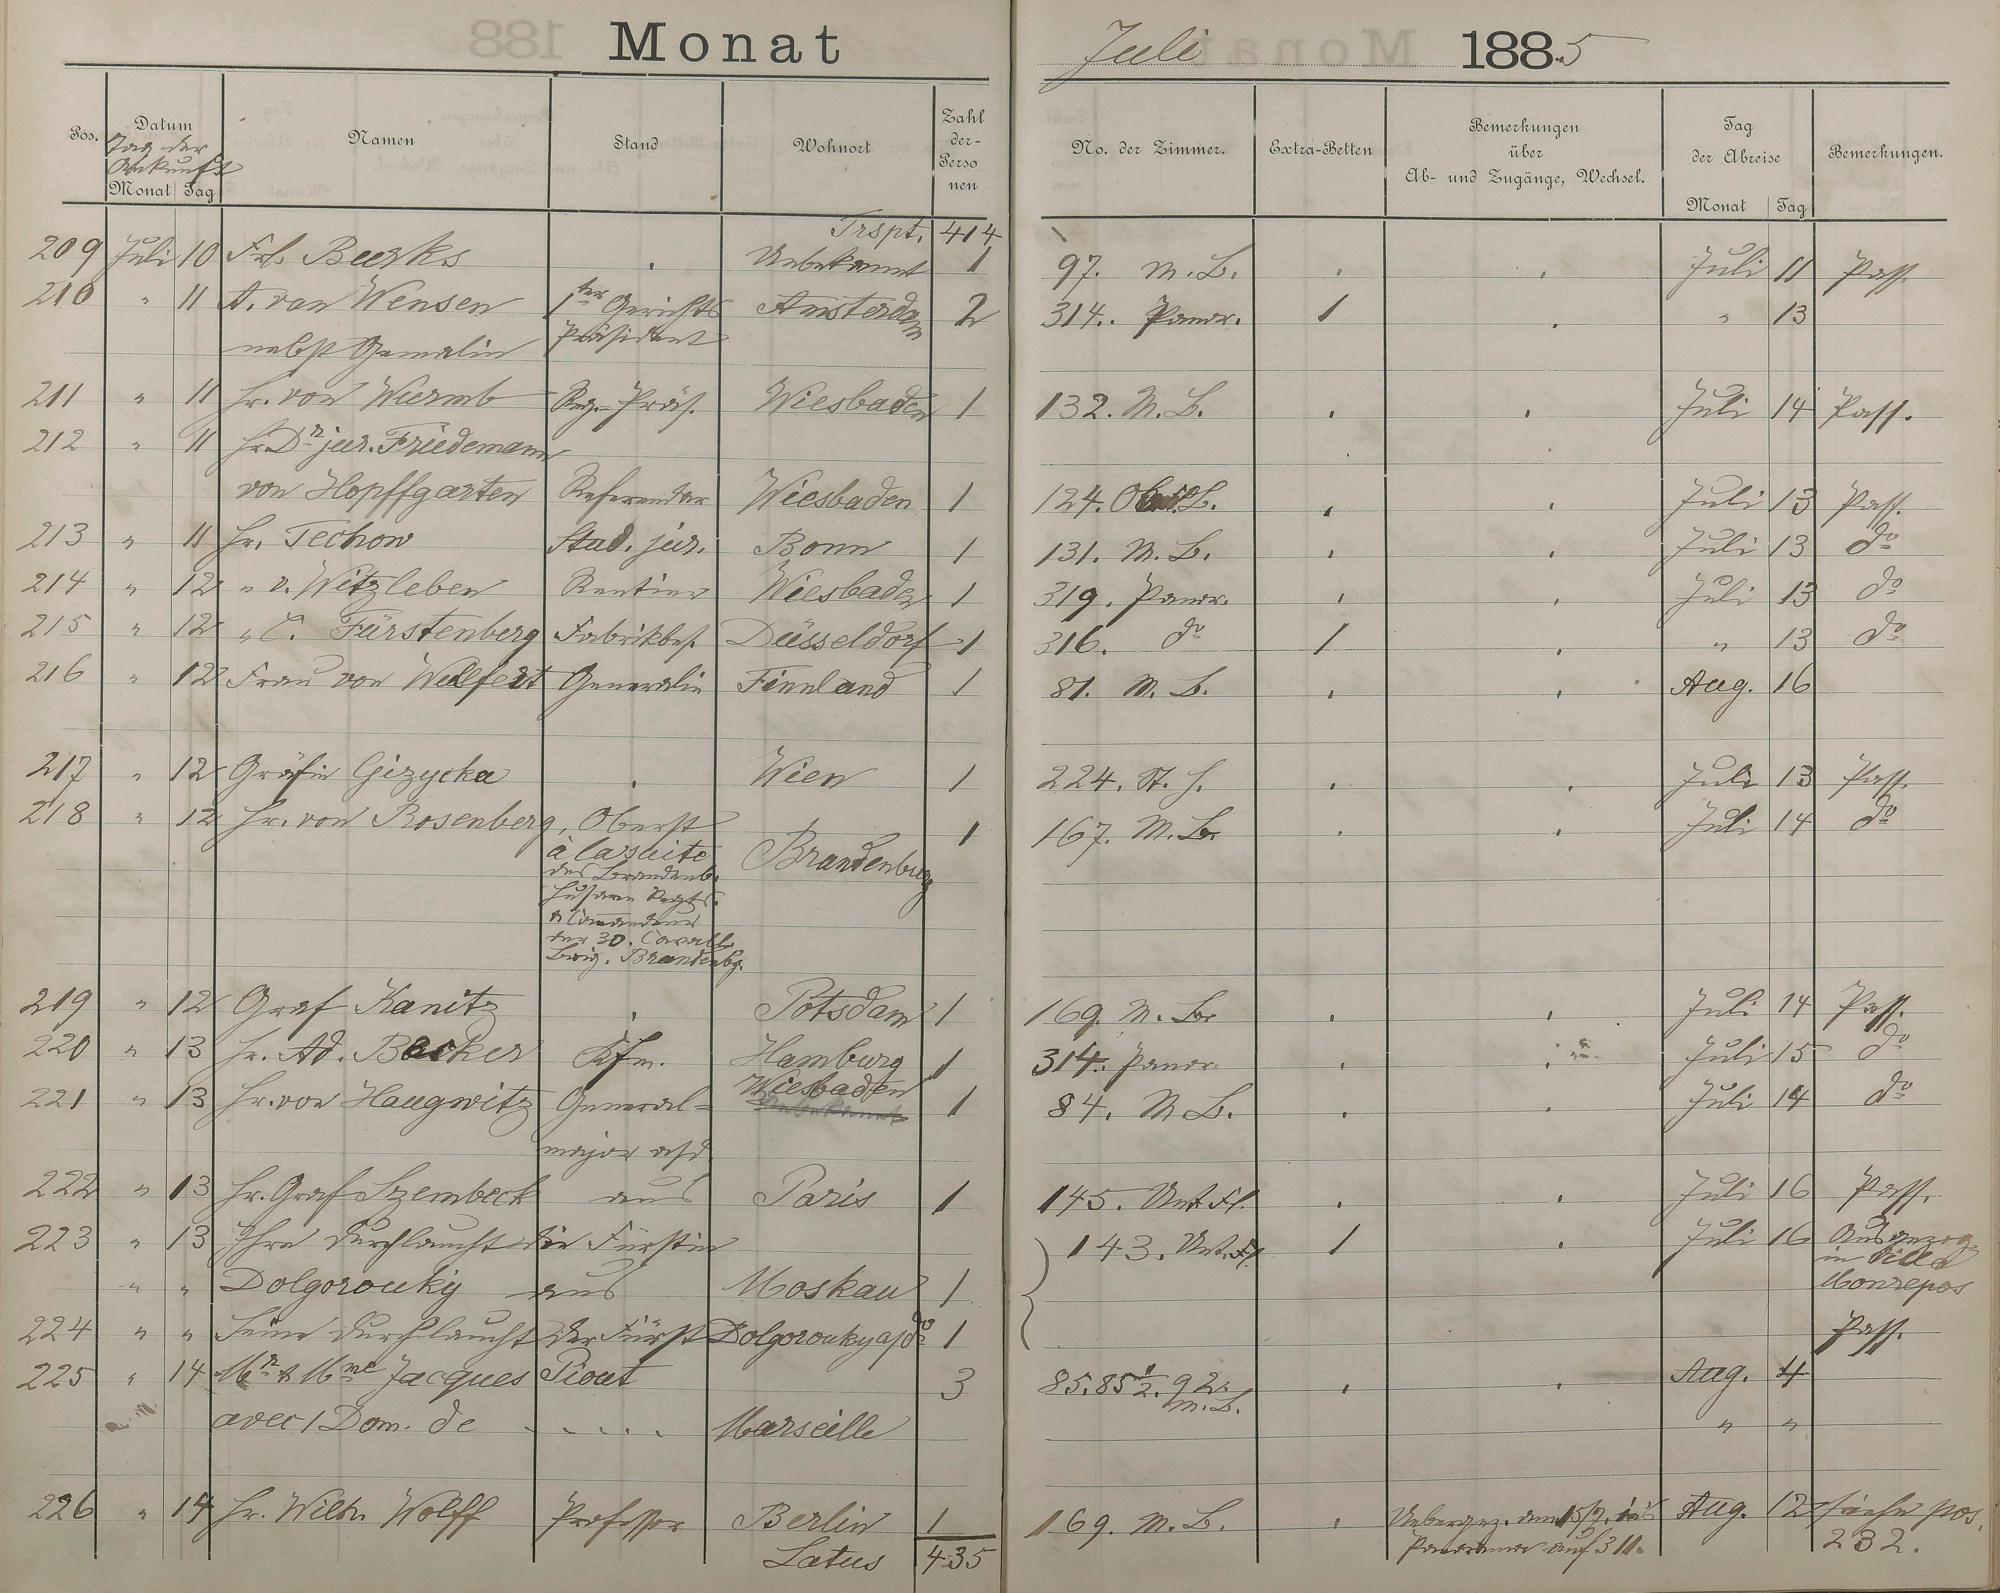 Monat Juli 1885
Pos. Datum Namen Stand Wohnort Zahl der Perso nen No. der Zimmer. Extra-Betten Bemerkungen über Ab- und Zugänge, Wechsel. Tag der Abreise Bemerkungen.
Tag der Ankunft
Monat Tag Monat Tag
Trspt. 414
209 Juli 10 Frl. Beerks Unbekannt 1 97. M. B. Juli 11 Pass.
210 " 11 A. van Wensen 1ter Gerichts Amsterdam 2 314. Panor. 1 " 13
nebst Gemalin Präsident
211 " 11 Hr. von Wurmb Reg. Präs. Wiesbaden 1 132. M. B. Juli 14 Pass.
212 " 11 Hr. Dr jur. Friedemann
von Hopffgarten Referendar Wiesbaden 1 124. B. Juli 13 Pass.
213 " 11 Hr. Techow Stud. jur. Bonn 1 131. M. B. Juli 13 do
214 " 12 " v. Witzleben Rentier Wiesbaden 1 319. Panor. Juli 13 do
215 " 12 " C. Fürstenberg Fabrikbes. Düsseldorf 1 316. do 1 " 13 do
216 " 12 Frau von Generalin Finnland 1 81. M. B. Aug. 16
217 " 12 Gräfin Gizycka Wien 1 224. St. H. Juli 13 Pass.
218 " 12 Hr. von Rosenberg, Oberst Brandenburg 1 167. M. B. Juli 14 do
à la suite
des Brandenb.
Husaren Regts.
& Comandeur
der 30. Cavall.
Brig. Brandenbg.
219 " 12 Graf Kanitz Potsdam 1 169. M. B. Juli 14 Pass.
220 " 13 Hr. Ad. Becker Kfm. Hamburg 1 314. Panor. Juli 15 do
221 " 13 Hr. von Haugwitz General- Wiesbaden 1 84. M. B. Juli 14 do
major
222 " 13 Hr. Graf Szembeck aus Paris 1 145. Unt. Fl. Juli 16 Pass.
223 " 13 Ihre Durchlaucht die Fürstin 143. Unt. Fl. 1 Juli 16 Ausgezog.
in Villa
" " Dolgorouky aus Moskau 1 Monrepos
224 " " Seine Durchlaucht der Fürst Dolgorouky a/ do 1 Pass.
225 " 14 Mr & Mme Jacques Piout 3 85. 85 1/2. 92. M. B. Aug. 4
avec 1 Dom. de - - - - - Marseille " "
226 " 14 Hr. Wilh. Wolff Professor Berlin 1 169. M. B. Uebergez. am 15/7. in's Aug. 12 siehe pos.
Panorama auf 311. 232.
Latus 435